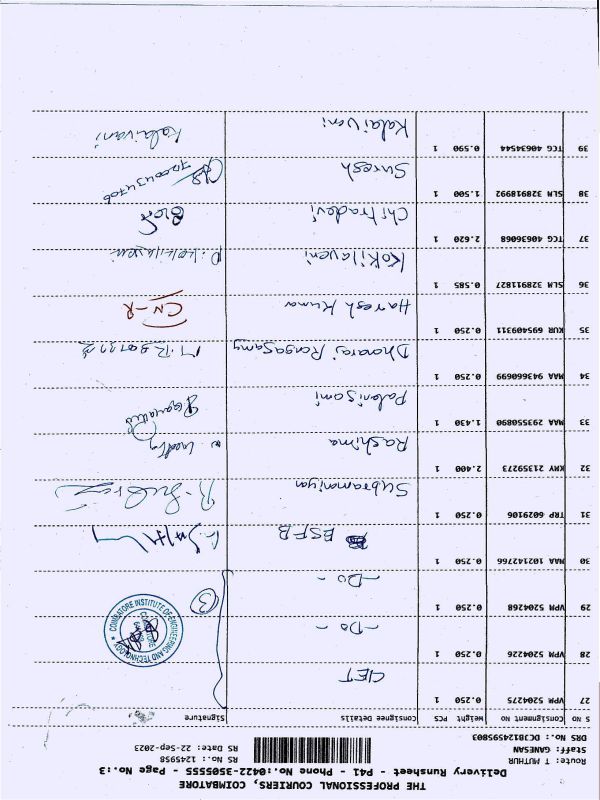 THE PROFESSIONAL COURIERS, COIMBATORE
Delivery Runsheet - P41 - Phone No.:0422-3505555 - Page No.:3
Route: T MUTHUR
Staff: GANESAN
DRS No.: DCB124595803
RS No.: 1245958
RS Date: 22-Sep-2023
S NO Consignment NO Weight PCS Consignee Details Signature
27 VPM 5204275 0.250 1 CIET
28 VPM 5204226 0.250 1 -Do-
29 VPM 5204268 0.250 1 -Do- 3
COIMBATORE INSTITUTE OF ENGINEERING AND TECHNOLOGY
COIMBATORE
30 MAA 102142766 0.250 1 ESFB
31 TRP 6029106 0.250 1 Subramaniyan
32 KMY 21359273 2.400 1 Rashima
33 MAA 293550890 1.430 1 Palanisami
34 MAA 943660699 0.250 1 Dhanraj Rangasamy
35 KUR 695409311 0.250 1 Harresh Kumar CN-R
36 SLM 328911827 0.585 1 Kokilaveni P. Kokilaveni
37 TCG 40636068 2.620 1 Chitradevi
38 SLM 328918992 1.500 1 Suresh
39 TCG 40634544 0.590 1 Kalaivani Kalaivani